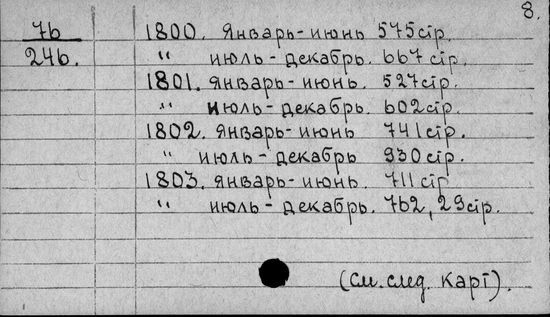 8.
7б
24б.
1800. Январь-июнь 575 стр.
" июль-декабрь. 667 стр.
1801. январь-июнь. 527 стр.
" июль-декабрь. 602 стр.
1802. январь-июнь 741 стр.
" июль-декабрь 930 стр.
1803. январь-июнь. 711 стр
" июль-декабрь. 762, 29 стр.
(см. след. карт).